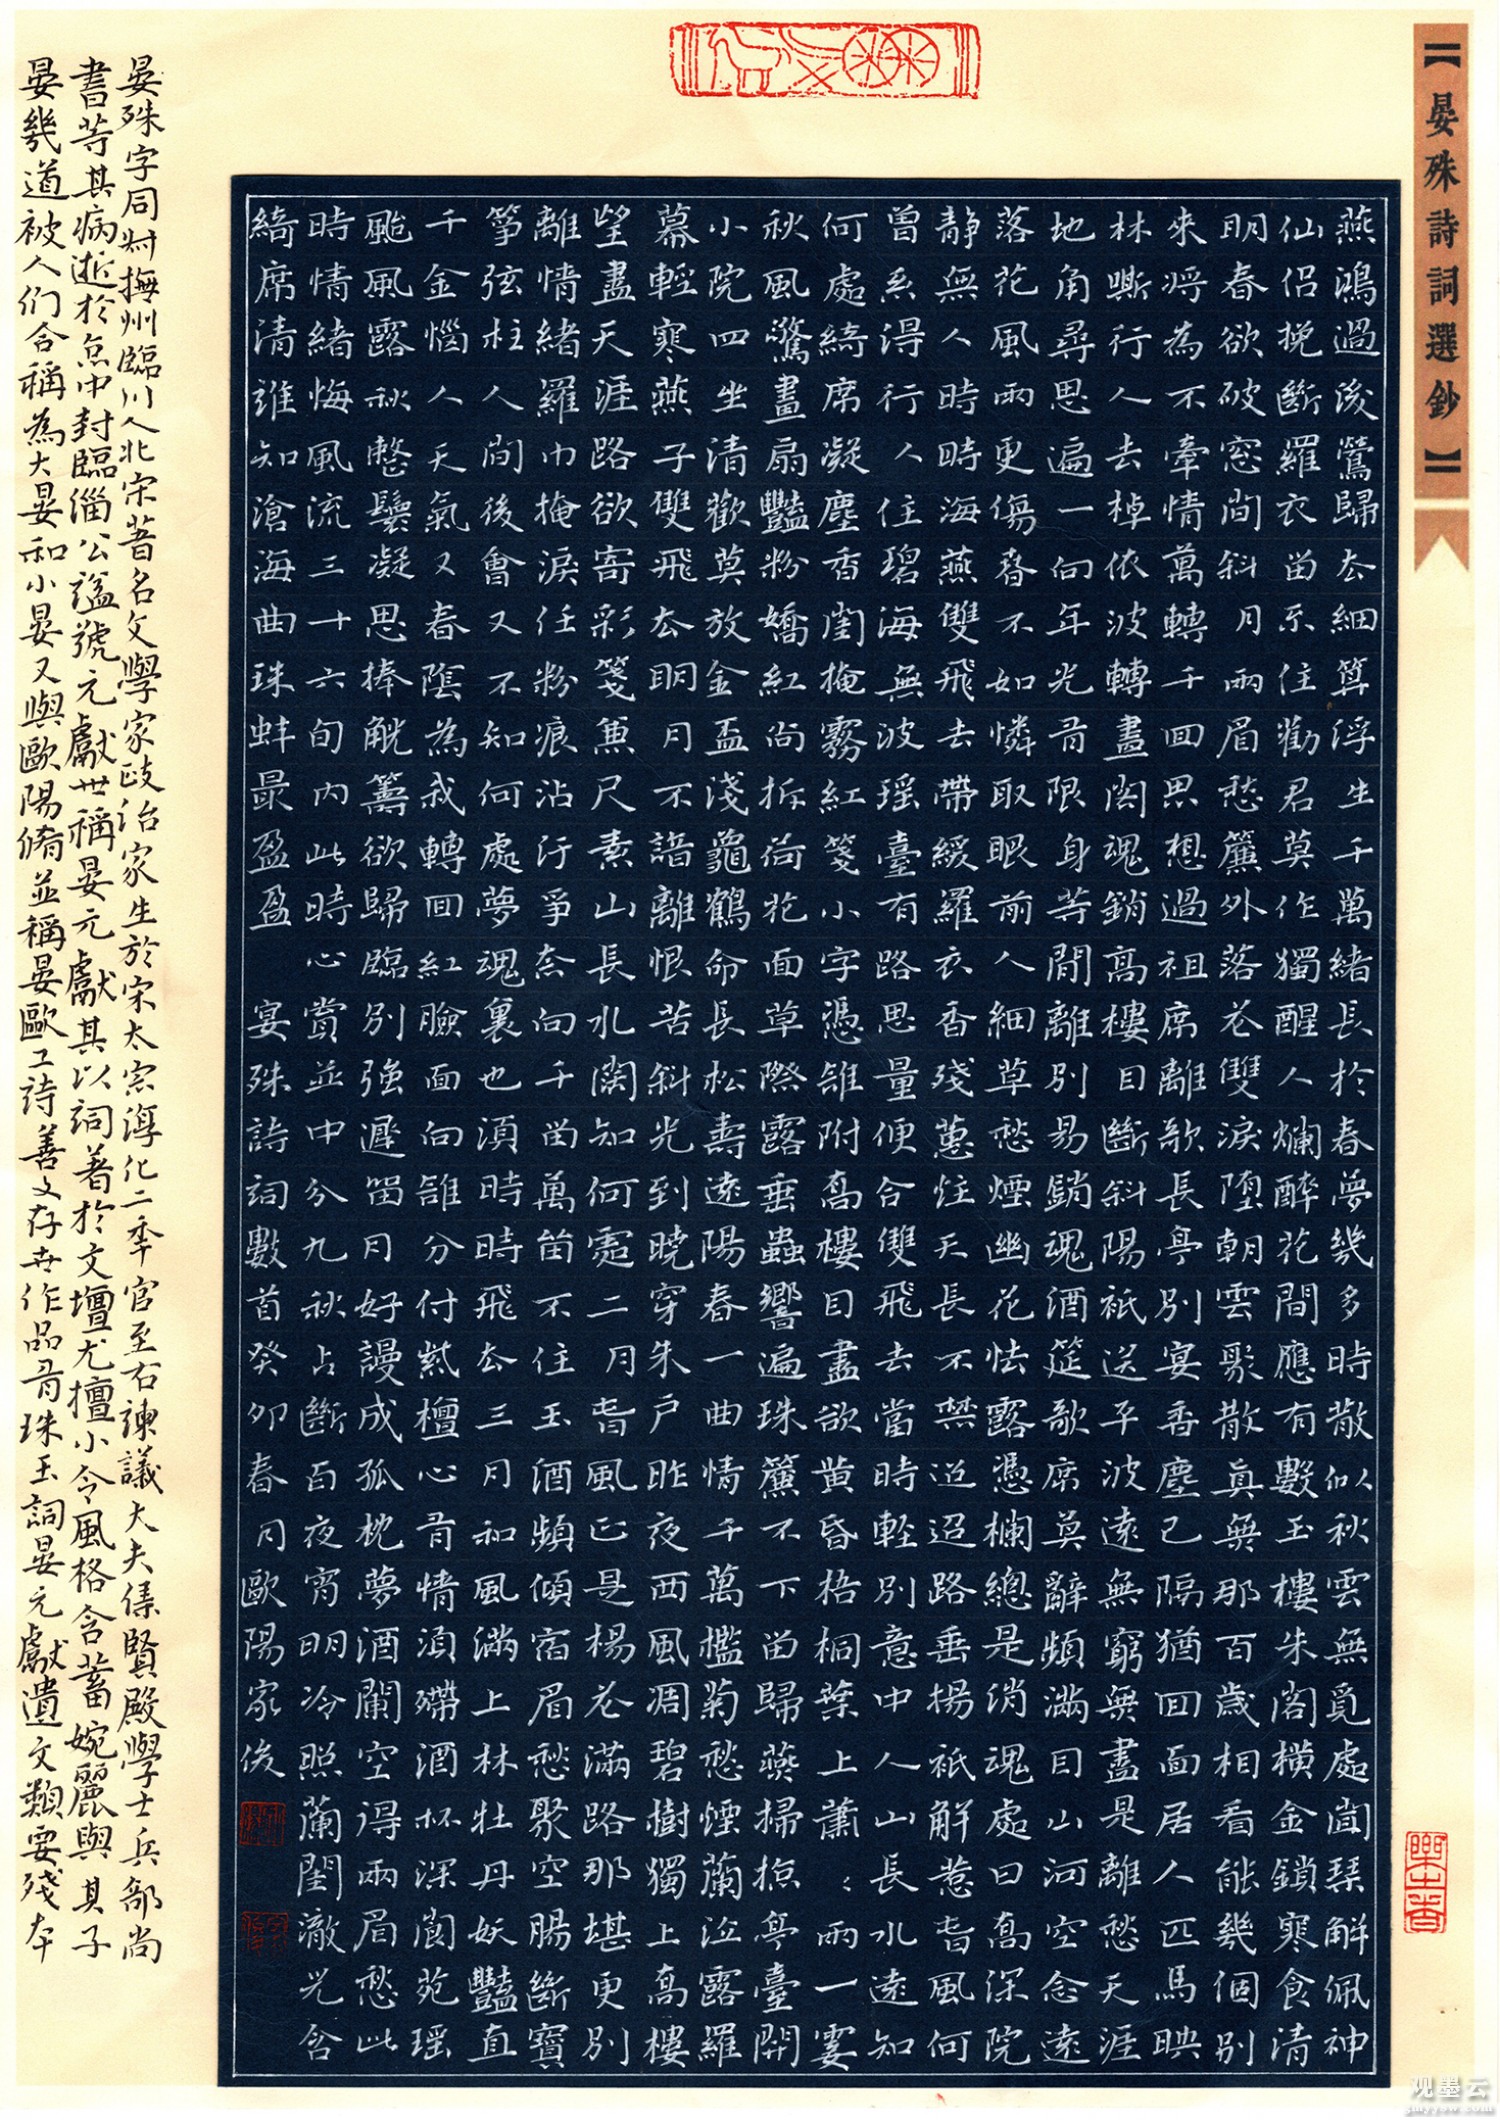 【晏殊詩詞選鈔】
燕鴻過後鶯歸去細算浮生千萬緒長於春夢幾多時散似秋雲無覓處聞琴解佩神
仙侶挽斷羅衣留不住勸君莫作獨醒人爛醉花間應有數玉樓朱閣橫金鎖寒食清
明春欲破窓間斜月兩眉愁簾外落花雙淚墮朝雲聚散真無那百歲相看能幾個別
來將為不牽情萬轉千回思想過祖席離歌長亭別宴香塵已隔猶回面居人匹馬映
林嘶行人去棹依波轉畫閣魂銷高樓目斷斜陽祇送平波遠無窮無盡是離愁天涯
地角尋思遍一向年光有限身等閒離別易銷魂酒筵歌席莫辭頻滿目山河空念遠
落花風雨更傷春不如憐取眼前人細草愁煙幽花怯露憑欄總是消魂處日高深院
靜無人時時海燕雙飛去帶緩羅衣香殘蕙炷天長不禁迢迢路垂楊祇解惹春風何
曾系得行人住碧海無波瑤臺有路思量便合雙飛去當時輕別意中人山長水遠知
何處綺席凝塵香閨掩霧紅箋小字憑誰附高樓目盡欲黃昏梧桐葉上蕭〻雨一霎
秋風驚畫扇豔粉嬌紅尚拆荷花面草際露垂蟲響遍珠簾不下留歸燕掃掠亭臺開
小院四坐清歡莫放金盃淺龜鶴命長松壽遠陽春一曲情千萬檻菊愁煙蘭泣露羅
幕輕寒燕子雙飛去明月不諳離恨苦斜光到曉穿朱戶昨夜西風凋碧樹獨上高樓
望盡天涯路欲寄彩箋兼尺素山長水闊知何處二月春風正是楊花滿路那堪更別
離情緒羅巾掩淚任粉痕沾污爭奈向千留萬留不住玉酒頻傾宿眉愁聚空腸斷寶
箏弦柱人間後會又不知何處夢魂裏也須時時飛去三月和風滿上林牡丹妖豔直
千金惱人天氣又春陰為我轉回紅臉面向誰分付紫檀心有情須殢酒杯深閬苑瑤
颱風露秋整鬟凝思捧觥籌欲歸臨別強遲留月好謾成孤枕夢酒闌空得兩眉愁此
時情緒悔風流三十六旬內此時心賞並中分九秋占斷百夜宵明冷照蘭閨澈光含
綺席清誰知滄海曲珠蚌最盈盈 晏殊詩詞數首癸卯春月歐陽家俊
晏殊字同叔撫州臨川人北宋著名文學家政治家生於宋太宗淳化二年官至右諫議大夫集賢殿學士兵部尚
書等其病逝於京中封臨淄公謚號元獻世稱晏元獻其以詞著於文壇尤擅小令風格含蓄婉麗與其子
晏幾道被人们合稱為大晏和小晏又與歐陽脩並稱晏歐工詩善文存世作品有珠玉詞晏元獻遺文類要殘本
观墨云
gmyyow.com